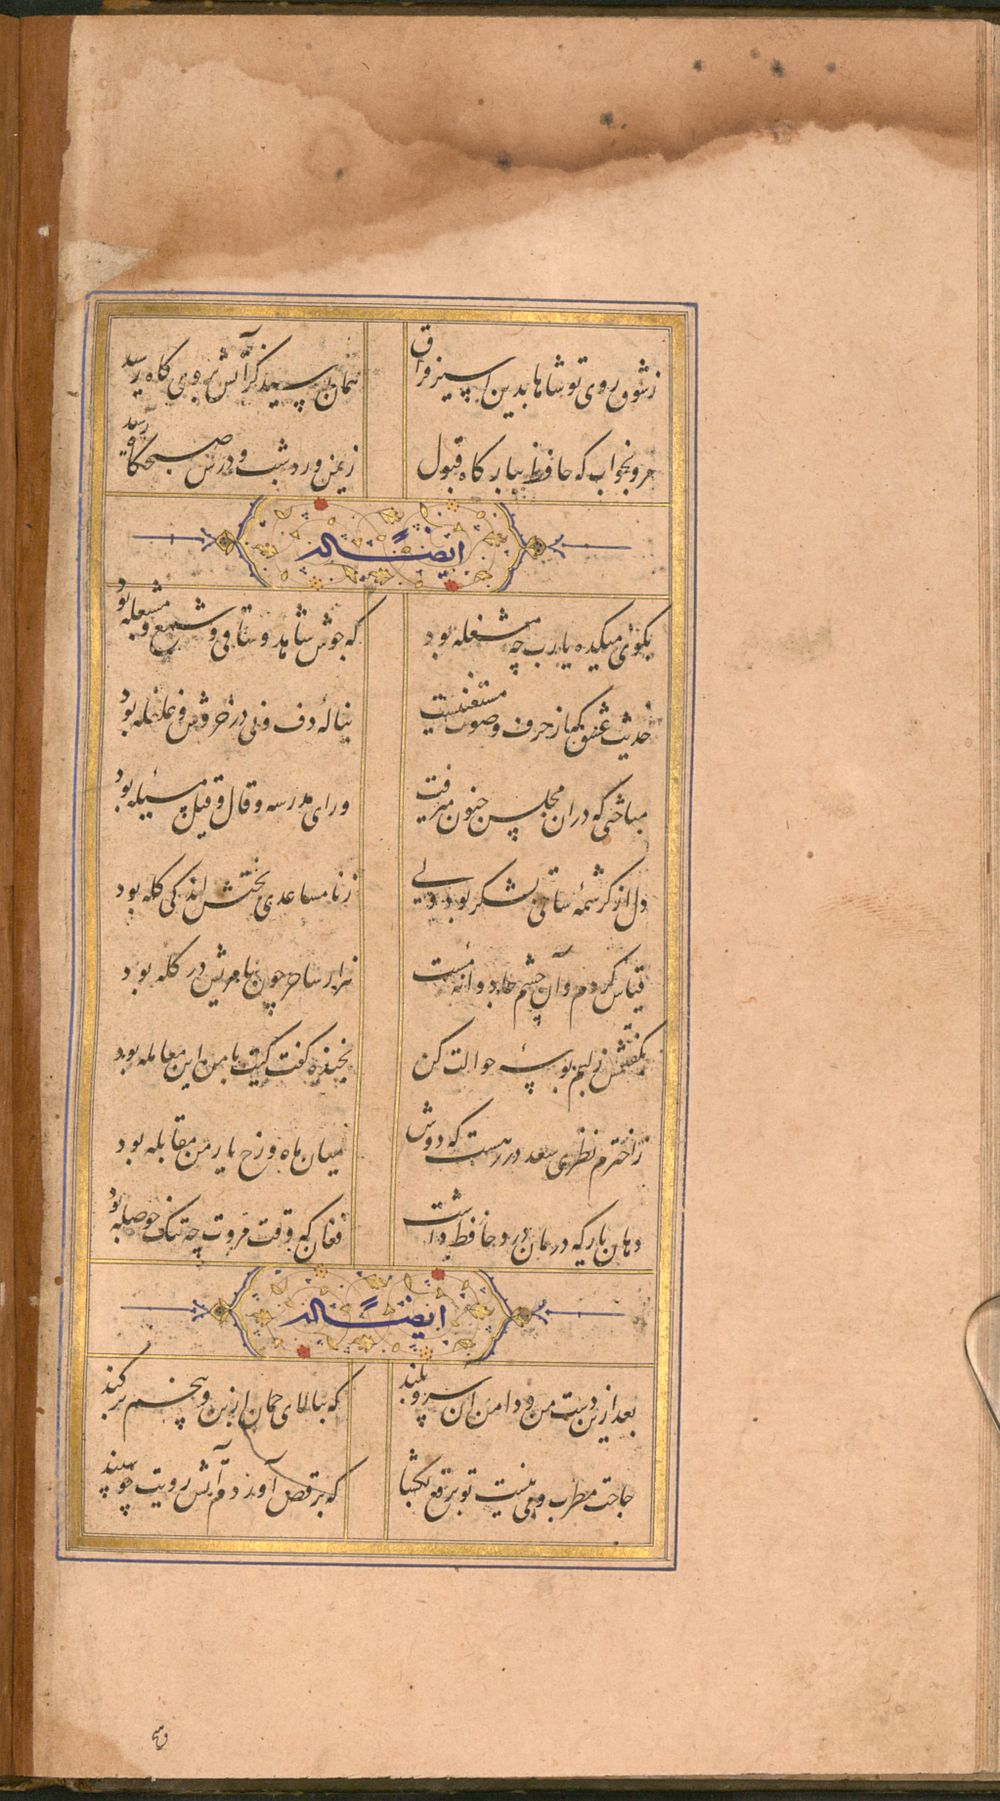 ز شوق روی تو شاها بدین اسیر فراق
همان رسید کز آتش بروی کاه رسید
مرو بخواب که حافظ ببارکاه قبول
ز یمن ورد شب و درس صبحکاه رسید
ایضاً له
بکوی میکده یا رب چه مشغله بود
که جوش شاهد و ساقی و شمع و مشعله بود
حدیث عشق که از حرف و صوت مستغنیست
بنالهٔ دف و نی در خروش و غلغله بود
مباحثی که در آن مجلس جنون میرفت
ورای مدرسه و قال و قیل مسئله بود
دل از کرشمهٔ ساقی بشکر بود ولی
ز نامساعدی بختش اندکی کله بود
قیاس کردم و آن چشم جادوانهٔ مست
هزار ساحر چون سامریش در کله بود
بکفتمش بلبم بوسهٔ حوالت کن
بخنده کفت کیت با من این معامله بود
ز اخترم نظری سعد در رهست که دوش
میان ماه و رخ یار من مقابله بود
دهان یار که درمان درد حافظ داشت
فغان که وقت مروت چه تنک حوصله بود
ایضاً له
بعد ازین دست من و دامن آن سرو بلند
که ببالای چمان از بن و بیخم برکند
حاجت مطرب و می نیست تو برقع بکشا
که برقص آوردم آتش رویت چو سپند